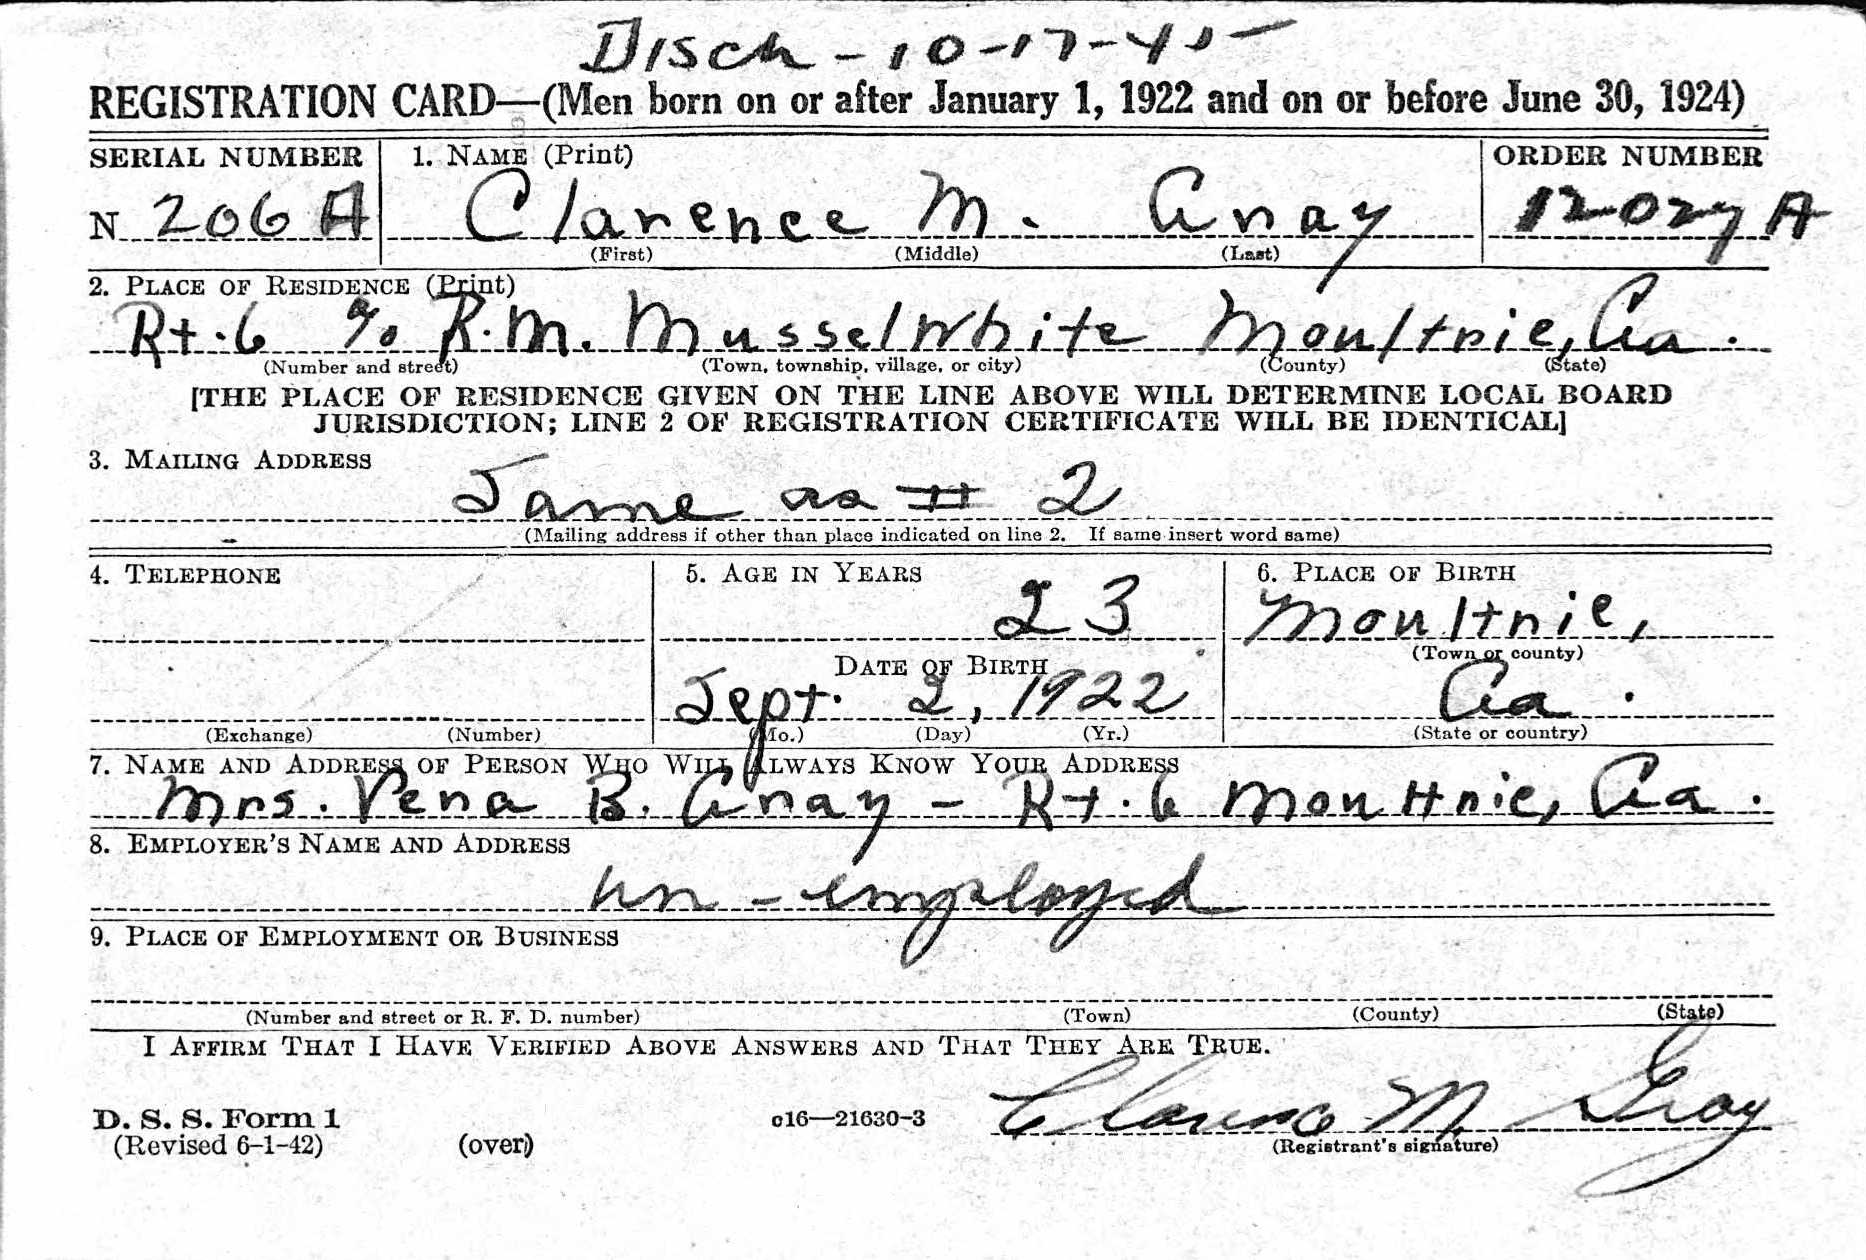 Disch - 10-17-45
REGISTRATION CARD—(Men born on or after January 1, 1922 and on or before June 30, 1924)
SERIAL NUMBER 1. NAME (Print) ORDER NUMBER
N 206 A Clarence M. Gray 12027 A
(First) (Middle) (Last)
2. PLACE OF RESIDENCE (Print)
Rt. 6 c/o R. M. Musselwhite Moultrie, Ga.
(Number and street) (Town, township, village, or city) (County) (State)
[THE PLACE OF RESIDENCE GIVEN ON THE LINE ABOVE WILL DETERMINE LOCAL BOARD
JURISDICTION; LINE 2 OF REGISTRATION CERTIFICATE WILL BE IDENTICAL]
3. MAILING ADDRESS
Same as # 2
(Mailing address if other than place indicated on line 2. If same insert word same)
4. TELEPHONE 5. AGE IN YEARS 6. PLACE OF BIRTH
23 Moultrie,
(Town or county)
DATE OF BIRTH
Sept. 2, 1922 Ga.
(Exchange) (Number) (Mo.) (Day) (Yr.) (State or country)
7. NAME AND ADDRESS OF PERSON WHO WILL ALWAYS KNOW YOUR ADDRESS
Mrs. Vena B. Gray - Rt. 6 Moultrie, Ga.
8. EMPLOYER'S NAME AND ADDRESS
un-employed
9. PLACE OF EMPLOYMENT OR BUSINESS
(Number and street or R. F. D. number) (Town) (County) (State)
I AFFIRM THAT I HAVE VERIFIED ABOVE ANSWERS AND THAT THEY ARE TRUE.
Clarence M. Gray
D. S. S. Form 1 c16—21630-3
(Revised 6-1-42) (over) (Registrant's signature)